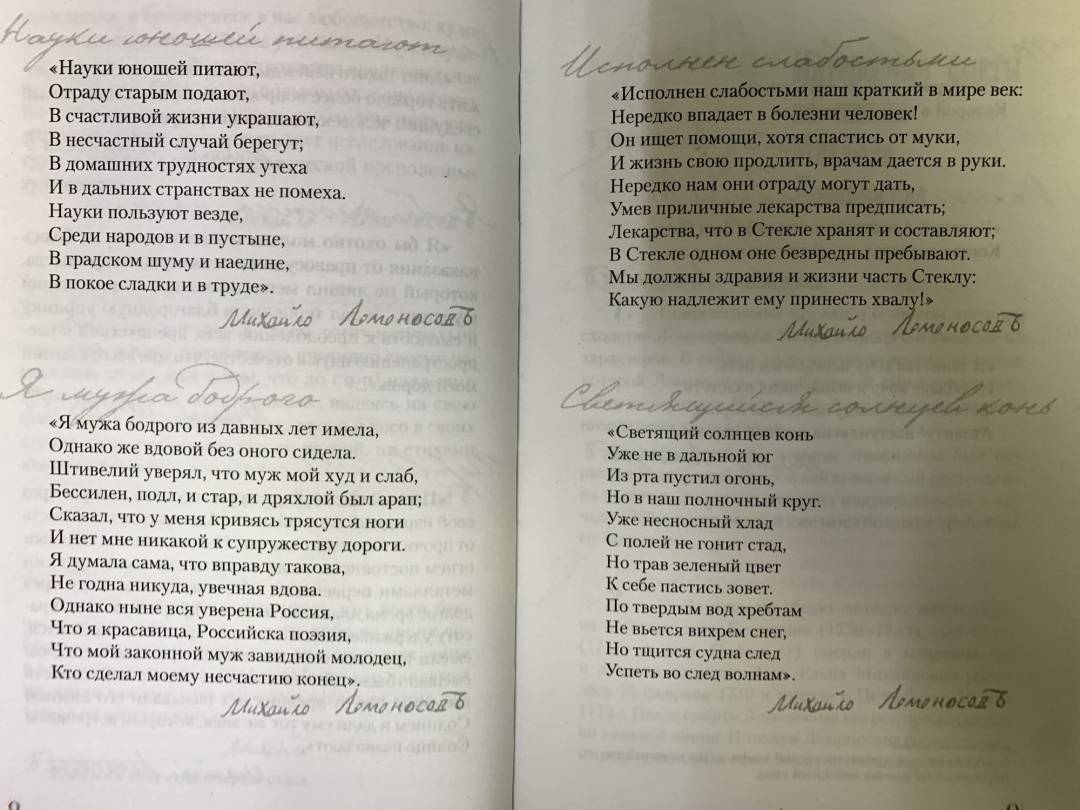 Науки юношей питают
«Науки юношей питают,
Отраду старым подают,
В счастливой жизни украшают,
В несчастный случай берегут;
В домашних трудностях утеха
И в дальних странствах не помеха.
Науки пользуют везде,
Среди народов и в пустыне,
В градском шуму и наедине,
В покое сладки и в труде».
Михайло Ломоносовъ
Я мужа бодрого
«Я мужа бодрого из давных лет имела,
Однако же вдовой без оного сидела.
Штивелий уверял, что муж мой худ и слаб,
Бессилен, подл, и стар, и дряхлой был арап;
Сказал, что у меня кривясь трясутся ноги
И нет мне никакой к супружеству дороги.
Я думала сама, что вправду такова,
Не годна никуда, увечная вдова.
Однако ныне вся уверена Россия,
Что я красавица, Российска поэзия,
Что мой законной муж завидной молодец,
Кто сделал моему несчастию конец».
Михайло Ломоносовъ
Исполнен слабостьми
«Исполнен слабостьми наш краткий в мире век:
Нередко впадает в болезни человек!
Он ищет помощи, хотя спастись от муки,
И жизнь свою продлить, врачам дается в руки.
Нередко нам они отраду могут дать,
Умев приличные лекарства предписать;
Лекарства, что в Стекле хранят и составляют;
В Стекле одном оне безвредны пребывают.
Мы должны здравия и жизни часть Стеклу:
Какую надлежит ему принесть хвалу!»
Михайло Ломоносовъ
Светящийся солнцев конь
«Светящий солнцев конь
Уже не в дальной юг
Из рта пустил огонь,
Но в наш полночный круг.
Уже несносный хлад
С полей не гонит стад,
Но трав зеленый цвет
К себе пастись зовет.
По твердым вод хребтам
Не вьется вихрем снег,
Но тщится судна след
Успеть во след волнам».
Михайло Ломоносовъ